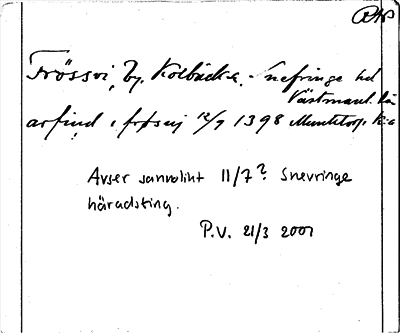 Frössvi, by, Kolbäck s. Snefringe hd
Västmanl. län
i frøsuj 12/7 1398
Avser sannolikt 11/7? Snevringe
häradsting.
P.V. 21/3 2001